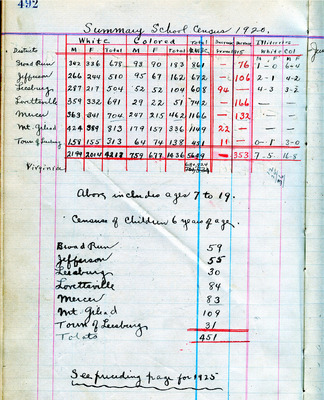 492
Summary School Census 1920.
Districts White Colored Total Increase Decrease Illiterates
M F Total M F Total White Col
Broad Run 342 336 678 93 90 183 861 76 1-0 6-4
Jefferson 266 244 510 95 67 162 672 106 2-1 4-2
Leesburg 287 217 504 52 52 104 608 94 4-3 3-2
Lovettsville 359 332 691 29 22 51 742 166
Mercer 363 341 704 247 215 462 1166 132
Mt. Gilead 424 389 813 179 157 336 1149 22
Town of Leesburg 158 155 313 64 74 138 451 11 0-1 3-0
2199 2014 4213 759 677 1436 5649 353 7-5 16-8
Virginia
Above includes ages 7 to 19.
Census of Children 6 years of age.
Broad Run 59
Jefferson 55
Leesburg 30
Lovettsville 84
Mercer 83
Mt. Gilead 109
Town of Leesburg 31
Totals 451
See preceding page for 1925